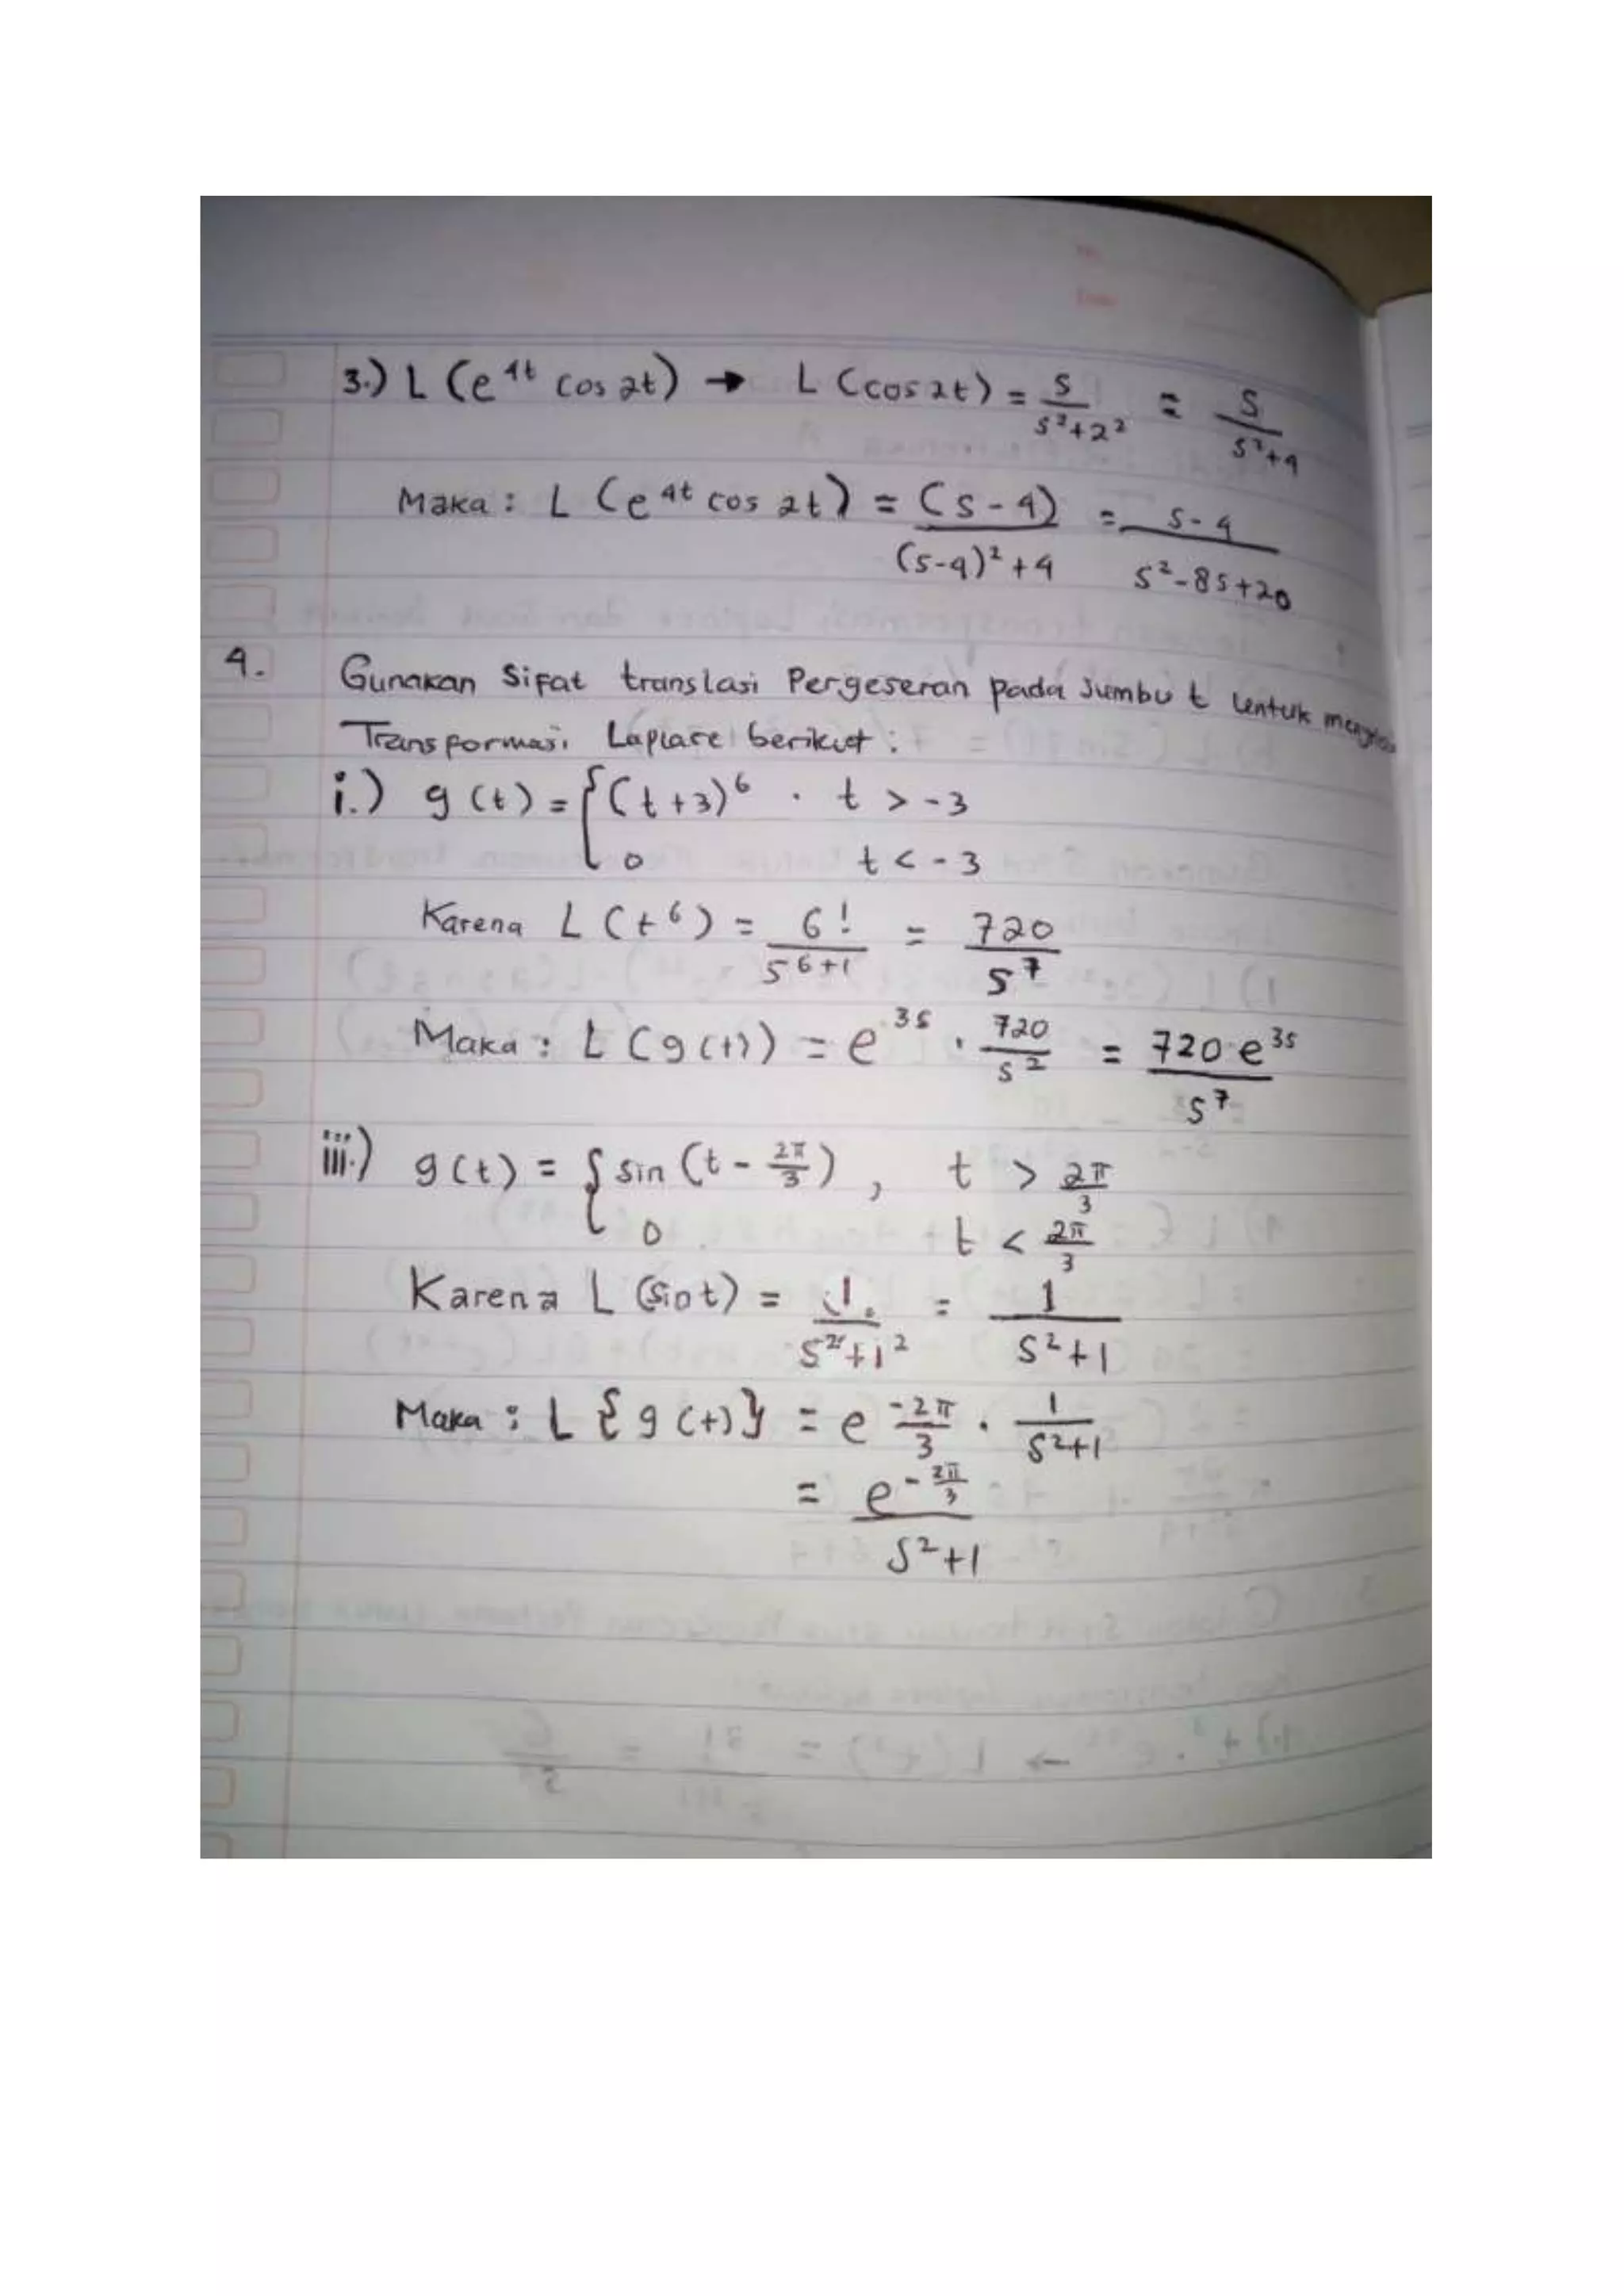 3.) L (e^4t cos 2t) → L (cos 2t) = s/(s²+2²) = s/(s²+4)
Maka : L (e^4t cos 2t) = (s-4)/((s-4)²+4) = (s-4)/(s²-8s+20)
4. Gunakan Sifat translasi Pergeseran pada Sumbu t untuk
Transformasi Laplace berikut :
i.) g(t) = { (t+3)^6 . t > -3
0 t < -3
Karena L (t^6) = 6!/s^(6+1) = 720/s^7
Maka : L (g(t)) = e^3s . 720/s^2 = 720 e^3s/s^7
iii.) g(t) = { sin (t - 2π/3) , t > 2π/3
0 t < 2π/3
Karena L (sin t) = 1/(s²+1²) = 1/(s²+1)
Maka : L {g(t)} = e^(-2π/3) . 1/(s²+1)
= e^(-2π/3)/(s²+1)